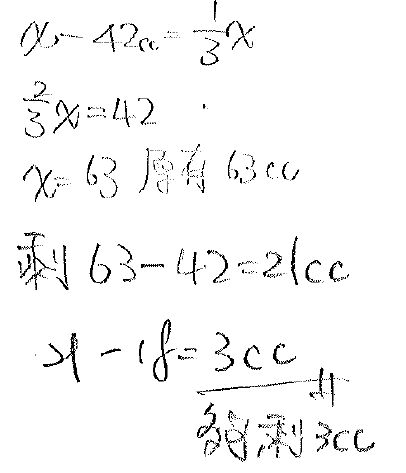 x - 42cc = 1/3 x
2/3 x = 42
x = 63 原有 63cc
剩 63 - 42 = 21cc
21 - 18 = 3cc
剩 3cc